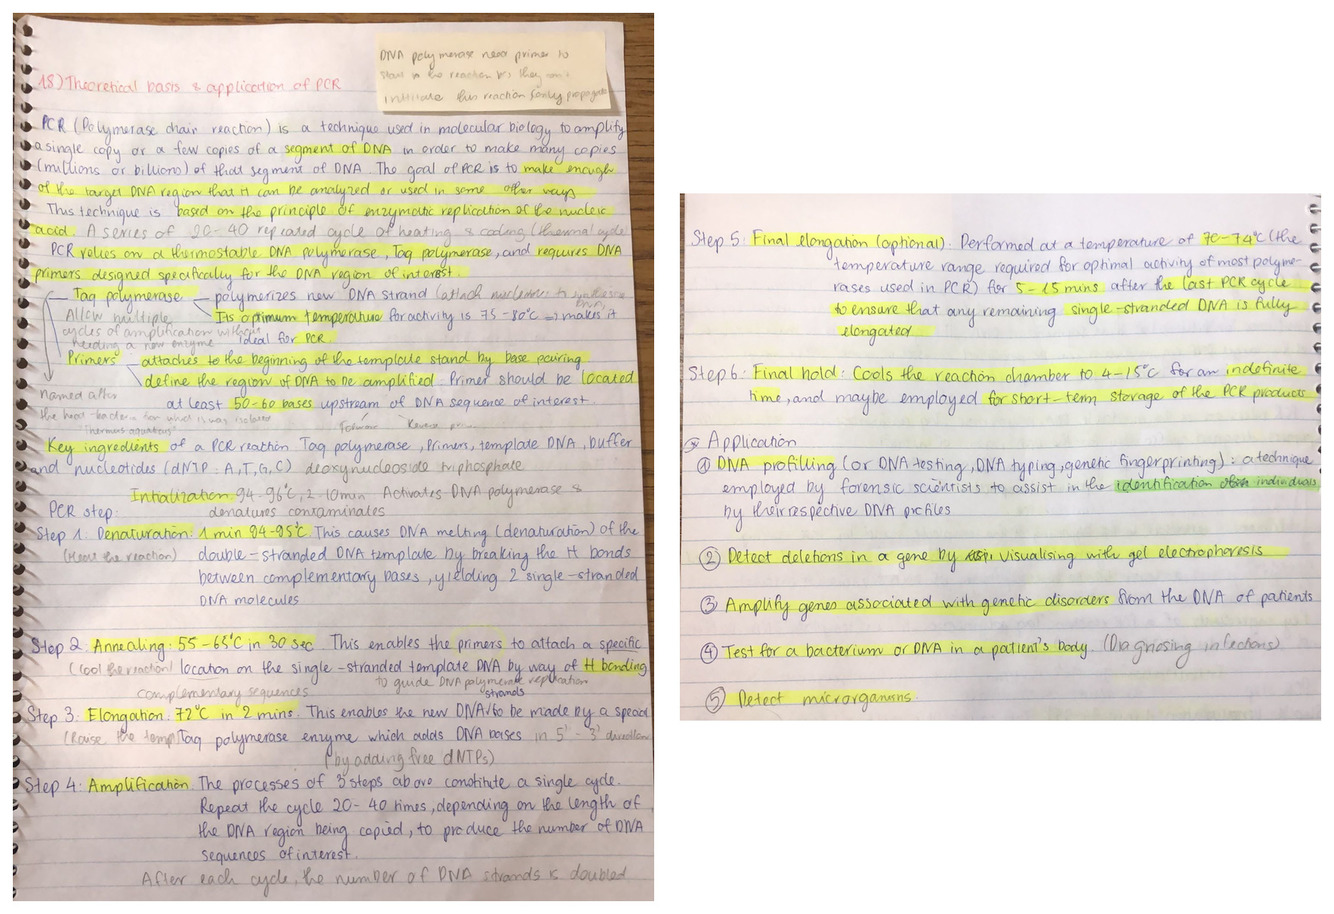 DNA polymerase need primer to
start to the reaction bcs they can't
initiate this reaction (only propagate
18) Theoretical basis & application of PCR
PCR (Polymerase chain reaction) is a technique used in molecular biology to amplify
a single copy or a few copies of a segment of DNA in order to make many copies
(millions or billions) of that segment of DNA. The goal of PCR is to make enough
of the target DNA region that it can be analyzed or used in some other ways
This technique is based on the principle of enzymatic replication of the nucleic
acid. A series of 20-40 repeated cycle of heating & cooling (thermal cycle)
PCR relies on a thermostable DNA polymerase, Taq polymerase, and requires DNA
primers designed specifically for the DNA region of interest.
Taq polymerase - polymerizes new DNA strand (attach nucleotides to synthesise DNA)
Allow multiple
cycles of amplification without
needing a new enzyme
Its optimum temperature for activity is 75-80°C => makes it
ideal for PCR
Primers attaches to the beginning of the template stand by base pairing
define the region of DNA to be amplified. Primer should be located
at least 50-60 bases upstream of DNA sequence of interest.
Named after
the heat-bacterium from which it was isolated
"Thermus aquaticus"
Forward Reverse
Key ingredients of a PCR reaction Taq polymerase, Primers, template DNA, buffer
and nucleotides (dNTP: A,T,G,C) deoxynucleoside triphosphate
Initialization 94-96°C, 2-10min Activates DNA polymerase &
denatures contaminates
PCR step:
Step 1: Denaturation: 1 min 94-95°C. This causes DNA melting (denaturation) of the
(Heat the reaction) double-stranded DNA template by breaking the H bonds
between complementary bases, yielding 2 single-stranded
DNA molecules
Step 2: Annealing: 55-65°C in 30 sec. This enables the primers to attach a specific
(cool the reaction) location on the single-stranded template DNA by way of H bonding
complementary sequences to guide DNA polymerase replication
strands
Step 3: Elongation: 72°C in 2 mins. This enables the new DNA to be made by a special
(Raise the temp) Taq polymerase enzyme which adds DNA bases in 5'-3' direction
(by adding free dNTPs)
Step 4: Amplification: The processes of 3 steps above constitute a single cycle.
Repeat the cycle 20-40 times, depending on the length of
the DNA region being copied, to produce the number of DNA
sequences of interest.
After each cycle, the number of DNA strands is doubled
Step 5: Final elongation (optional). Performed at a temperature of 70-74°C (the
temperature range required for optimal activity of most polyme-
rases used in PCR) for 5-15 mins after the last PCR cycle
to ensure that any remaining single-stranded DNA is fully
elongated
Step 6: Final hold: Cools the reaction chamber to 4-15°C for an indefinite
time, and maybe employed for short-term storage of the PCR products
Application
① DNA profiling (or DNA testing, DNA typing, genetic fingerprinting): a technique
employed by forensic scientists to assist in the identification of individuals
by their respective DNA profiles
② Detect deletions in a gene by visualising with gel electrophoresis
③ Amplify genes associated with genetic disorders from the DNA of patients
④ Test for a bacterium or DNA in a patient's body. (Diagnosing infections)
⑤ Detect microorganisms